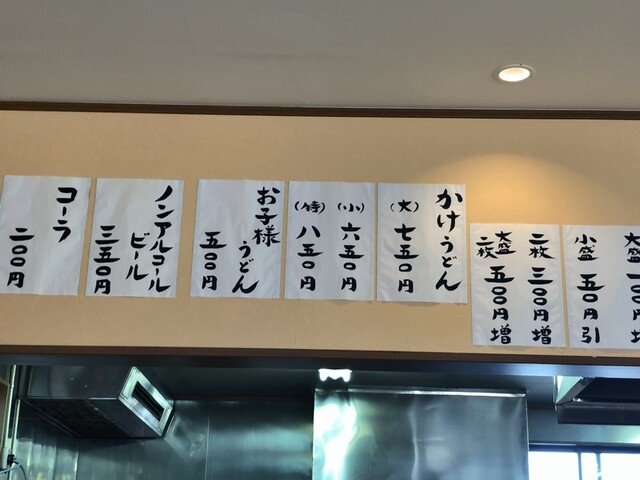 大盛 一〇〇円
小盛 五〇円引
二枚 三〇〇円増
大盛
二枚 五〇〇円増
かけうどん
(大) 七五〇円
(小) 六五〇円
(特) 八五〇円
お子様
うどん
五〇〇円
ノンアルコール
ビール
三五〇円
コーラ
二〇〇円